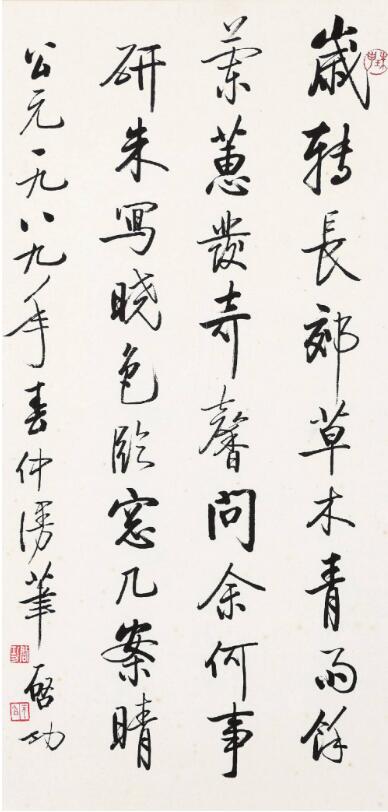 歲轉長郊草木青雨餘
蘭蕙發奇馨問余何事
研朱寫曉色臨窓几案晴
公元一九八九年春仲漫筆 啓功